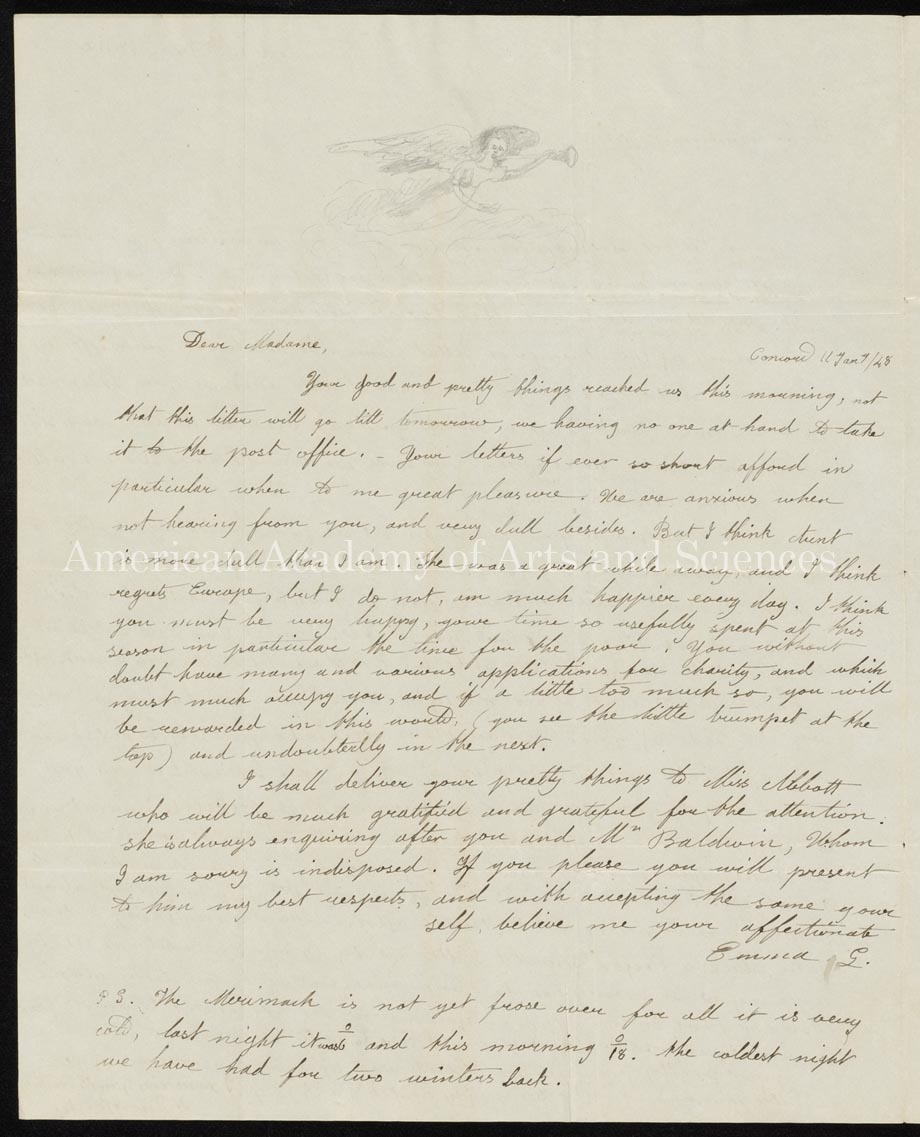 Dear Madame,
Concord 11 Jan 7/48
Your good and pretty things reached us this morning, not
that this litter will go till tomorrow, we having no one at hand to take
it to the post office. – Your letters if ever so short afford in
particular when to me great pleasure. We are anxious when
not hearing from you, and very dull besides. But I think Aunt
is more dull than I am. She was a great while away, and I think
American Academy of Arts and Sciences
regrets Europe, but I do not, am much happier every day. I think
you must be very happy, your time so usefully spent at this
season in particular the time for the poor. You without
doubt have many and various applications for charity, and which
must much occupy you, and if a little too much so, you will
be rewarded in this world, (you see the little trumpet at the
top) and undoubterlly in the next.
I shall deliver your pretty things to Miss Abbott
who will be much gratified and grateful for the attention.
she is always enquiring after you and Mr Baldwin, Whom
I am sorry is indisposed. If you please you will present
to him my best respects, and with accepting the same your
self, believe me your affectionate
Emma G.
P S. The Merimack is not yet frose over for all it is very
cold, last night it was 0/6 and this morning 0/18. the coldest night
we have had for two winters back.